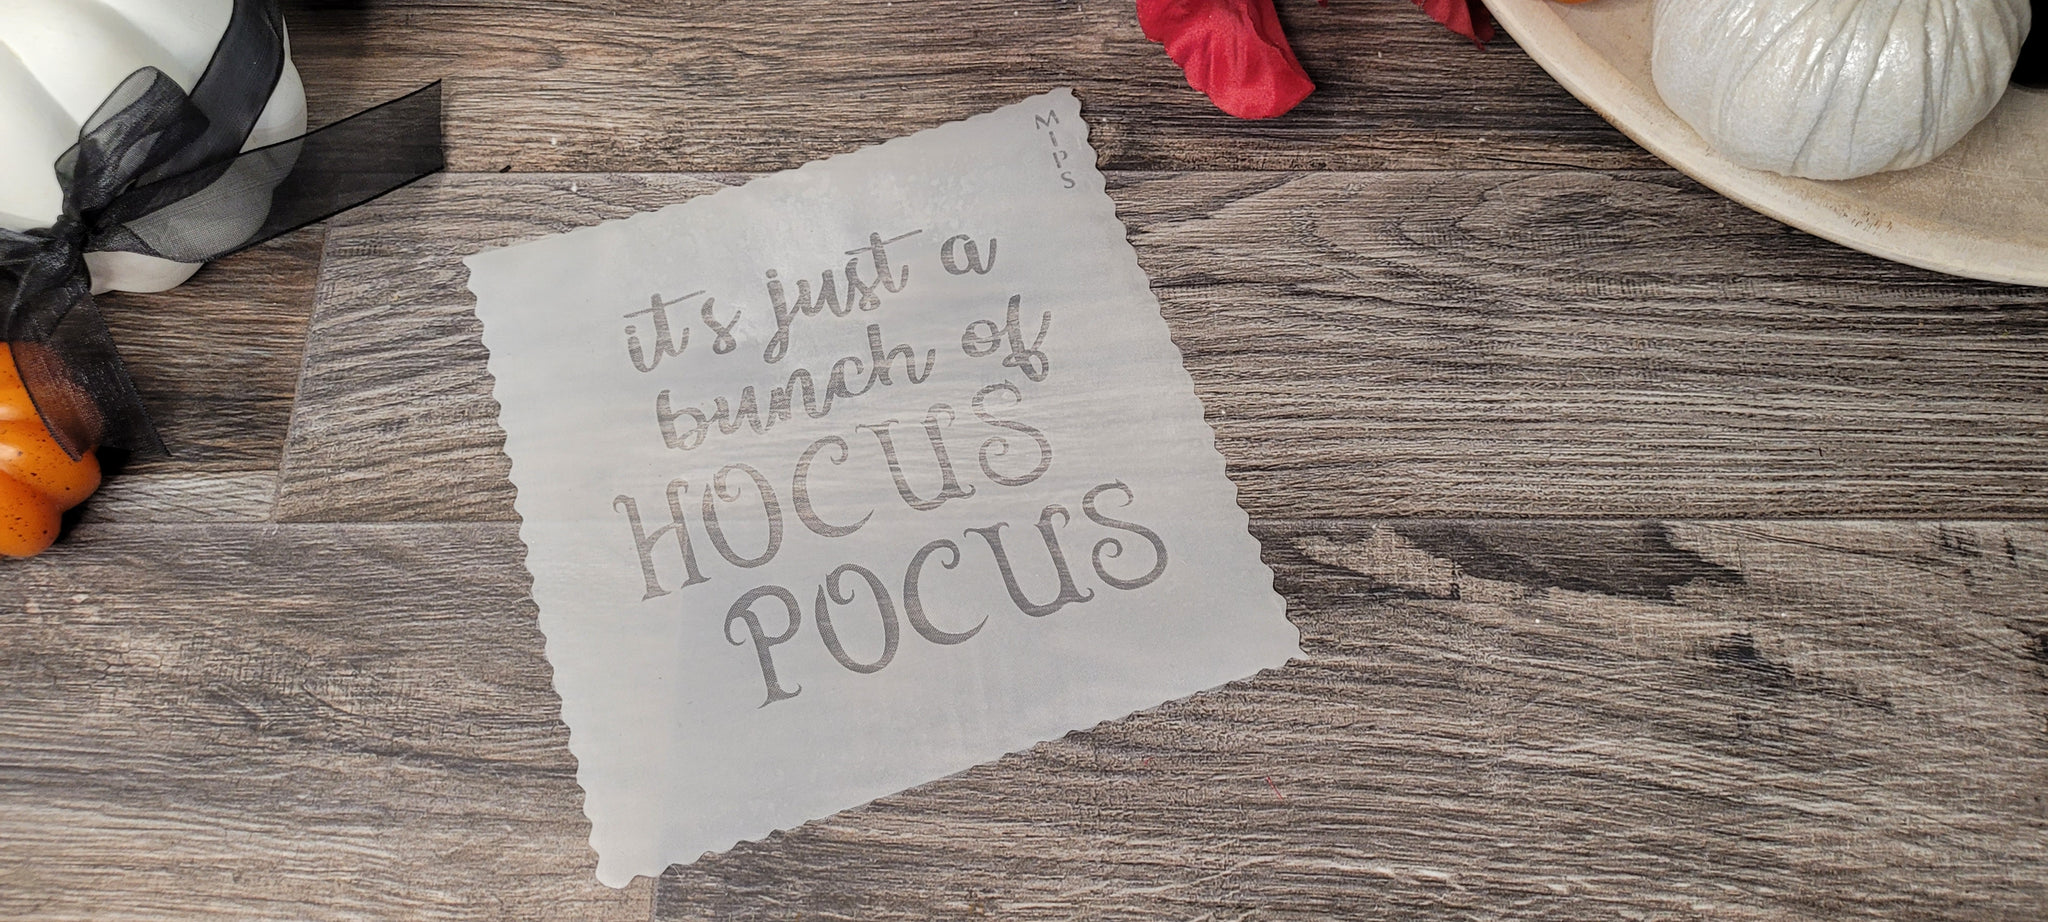 MIPS
it's just a
bunch of
HOCUS
POCUS